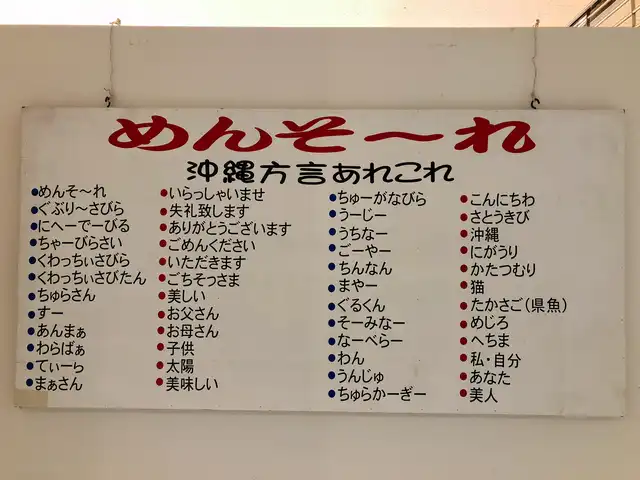 めんそ～れ
沖縄方言あれこれ
●めんそ～れ ●いらっしゃいませ
●ぐぶり～さびら ●失礼致します
●にへーでーびる ●ありがとうございます
●ちゃーびらさい ●ごめんください
●くわっちぃさびら ●いただきます
●くわっちぃさびたん ●ごちそっさま
●ちゅらさん ●美しい
●すー ●お父さん
●あんまぁ ●お母さん
●わらばぁ ●子供
●てぃーら ●太陽
●まぁさん ●美味しい
●ちゅーがなびら ●こんにちわ
●うーじー ●さとうきび
●うちなー ●沖縄
●ごーやー ●にがうり
●ちんなん ●かたつむり
●まやー ●猫
●ぐるくん ●たかさご(県魚)
●そーみなー ●めじろ
●なーべらー ●へちま
●わん ●私・自分
●うんじゅ ●あなた
●ちゅらかーぎー ●美人